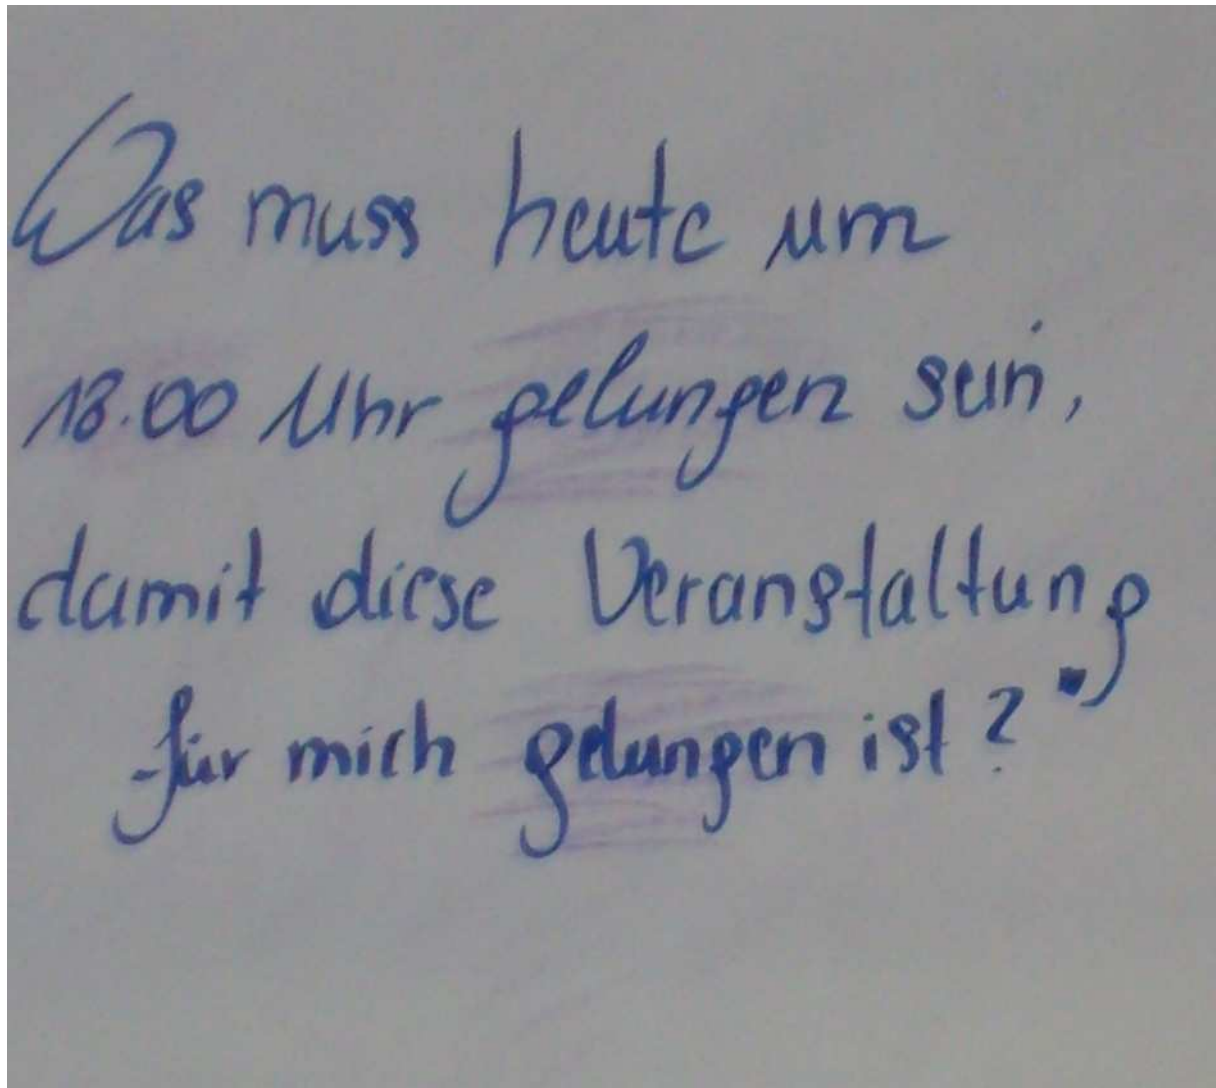 Was muss heute um
18.00 Uhr gelungen sein,
damit diese Veranstaltung
für mich gelungen ist?